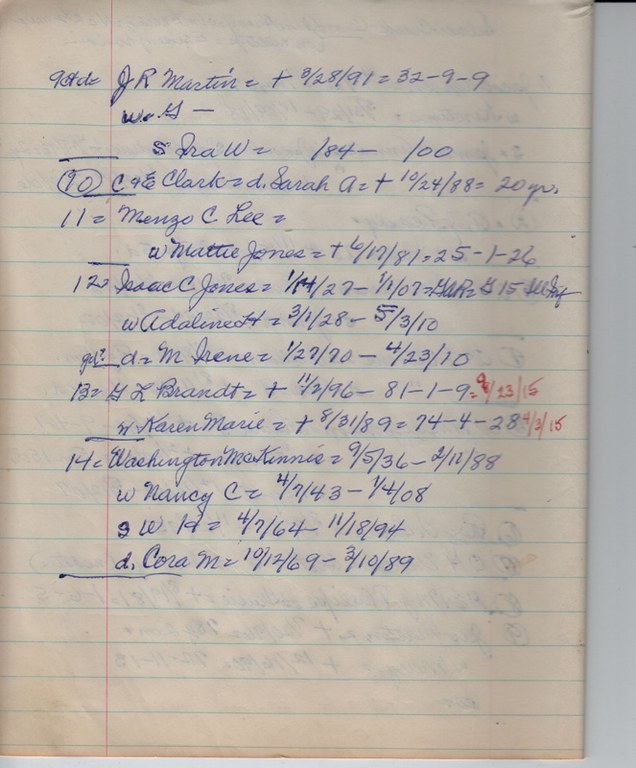 J R Martin = + 3/28/91 = 32-9-9
w. G —
s Ira W = /84 — /00
(10) C + E Clark = d. Sarah A = + 10/24/88 = 20 yr.
11 = Menzo C Lee =
w Mattie Jones = + 6/17/81 = 25-1-26
12 = Isaac C Jones = 1/14/27 - 1/1/07 = GAR = G 15 Inf
w Adaline H = 3/1/28 - 5/3/10
d = M Irene = 1/27/70 - 4/23/10
13 = G L Brandt = + 11/2/96 - 81-1-9 = 9/23/15
w Karen Marie = + 8/31/89 = 74-4-28 4/3/15
14 = Washington McKinnie = 9/5/36 - 2/11/88
w Nancy C = 4/7/43 - 1/4/08
s W H = 4/7/64 - 11/18/94
d. Cora M = 10/12/69 - 3/10/89